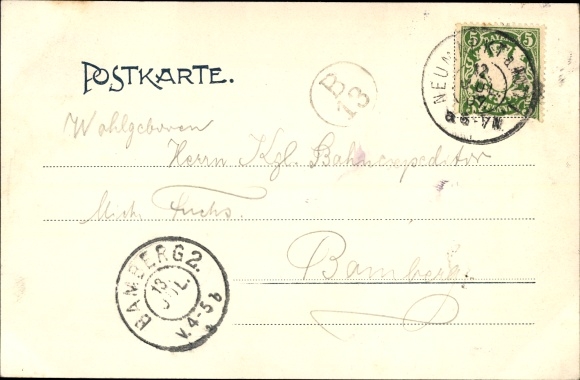 POSTKARTE.
5 5
B
13
NEUM
12
8-9 VN.
Wohlgeboren
Herrn Kgl. Bahnexpeditor
Mich. Fuchs.
Bamberg.
BAMBERG 2.
13
JUL
V. 4-5 b